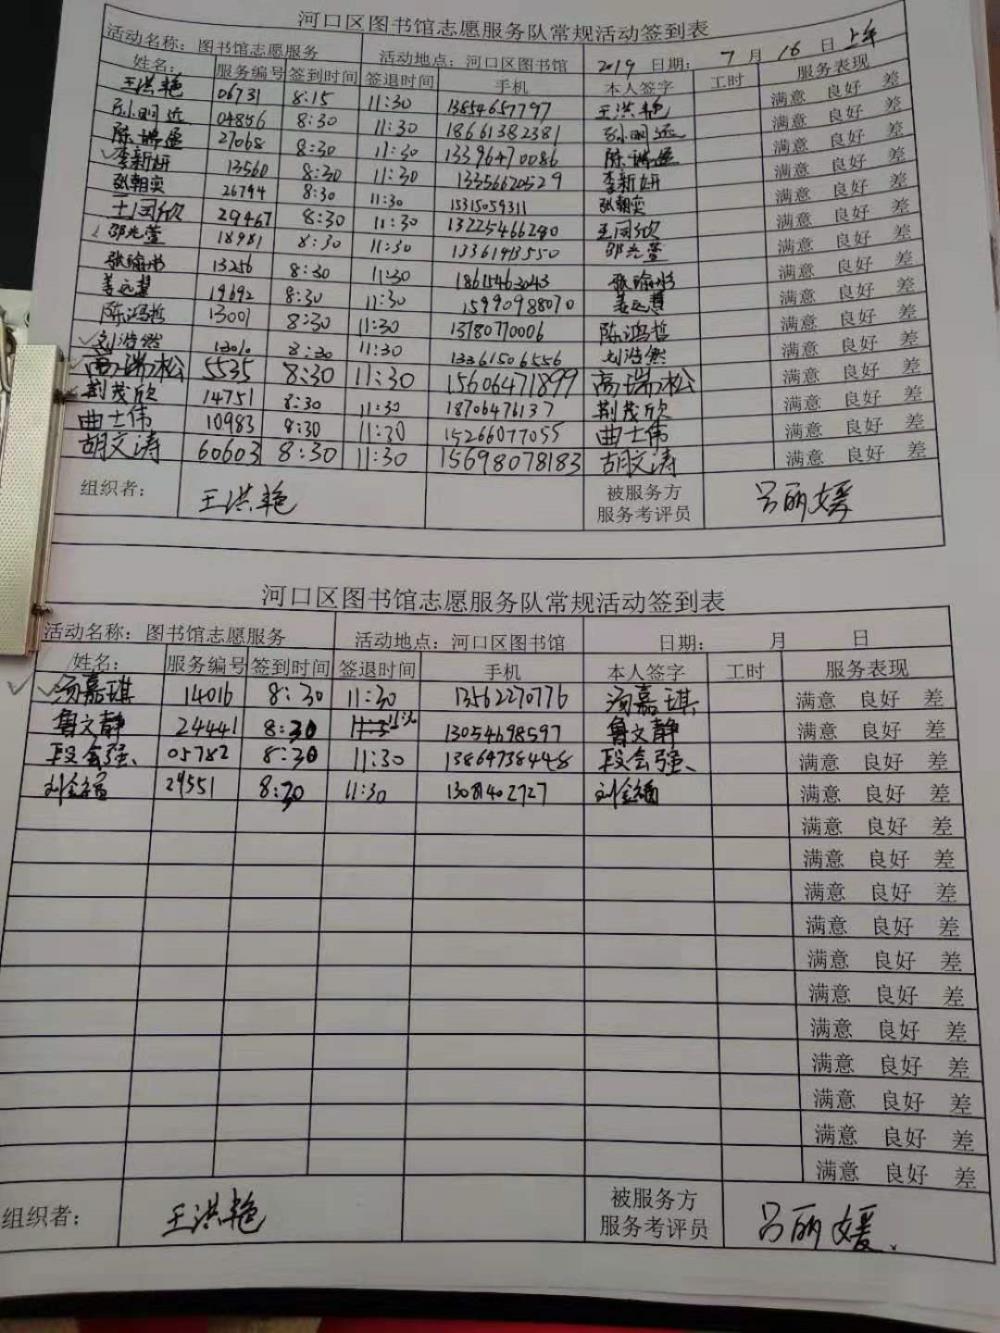 河口区图书馆志愿服务队常规活动签到表
活动名称：图书馆志愿服务 活动地点：河口区图书馆 2019 日期： 7 月 16 日 上午
姓名： 服务编号 签到时间 签退时间 手机 本人签字 工时 服务表现
王洪艳 06731 8:15 11:30 13854657797 王洪艳 满意 良好 差
孙明远 04856 8:30 11:30 18661382381 孙明远 满意 良好 差
陈 27068 8:30 11:30 13396470086 陈 满意 良好 差
李新妍 13560 8:30 11:30 13356620529 李新妍 满意 良好 差
张朝奕 26794 8:30 11:30 15315059311 张朝奕 满意 良好 差
王闵欣 29467 8:30 11:30 13225466290 王闵欣 满意 良好 差
邵光莹 18981 8:30 11:30 13361993550 邵光莹 满意 良好 差
张瑜彤 13256 8:30 11:30 18615463043 张瑜彤 满意 良好 差
姜远慧 19692 8:30 11:30 15990988070 姜远慧 满意 良好 差
陈鸿哲 13001 8:30 11:30 13780770006 陈鸿哲 满意 良好 差
刘浩然 8:30 11:30 13361506556 刘浩然 满意 良好 差
高瑞松 5535 8:30 11:30 15606471899 高瑞松 满意 良好 差
荆茂欣 14751 8:30 11:30 18706476137 荆茂欣 满意 良好 差
曲士伟 10983 8:30 11:30 15266077055 曲士伟 满意 良好 差
胡文涛 60603 8:30 11:30 15698078183 胡文涛 满意 良好 差
组织者： 王洪艳 被服务方 吕丽媛
服务考评员
河口区图书馆志愿服务队常规活动签到表
活动名称：图书馆志愿服务 活动地点：河口区图书馆 日期： 月 日
姓名： 服务编号 签到时间 签退时间 手机 本人签字 工时 服务表现
汤嘉琪 14016 8:30 11:30 13562270776 汤嘉琪 满意 良好 差
鲁文静 24441 8:30 11:30 13054698597 鲁文静 满意 良好 差
段会强 05782 8:30 11:30 13864738448 段会强 满意 良好 差
刘 29551 8:30 11:30 13081402727 刘 满意 良好 差
满意 良好 差
满意 良好 差
满意 良好 差
满意 良好 差
满意 良好 差
满意 良好 差
满意 良好 差
满意 良好 差
满意 良好 差
满意 良好 差
满意 良好 差
组织者： 王洪艳 被服务方 吕丽媛
服务考评员